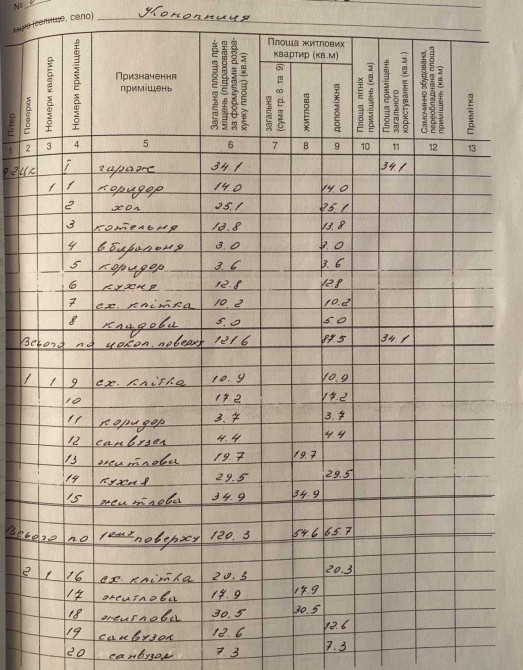 (селище, село) Конопниця
Літер
Поверхи
Номери квартир
Номери приміщень
Призначення приміщень
Загальна площа приміщень (підрахована за формулами розрахунку площ) (кв.м)
Площа житлових квартир (кв.м)
загальна (сума гр. 8 та 9)
житлова
допоміжна
Площа літніх приміщень (кв.м)
Площа приміщень загального користування (кв.м)
Самочинно збудована, переобладнана площа приміщень (кв.м)
Примітка
1 2 3 4 5 6 7 8 9 10 11 12 13
І гараж 34.1 34.1
1 1 коридор 14.0 14.0
2 хол 25.1 25.1
3 котельня 13.8 13.8
4 вбиральня 3.0 3.0
5 коридор 3.6 3.6
6 кухня 12.8 12.8
7 сх. клітка 10.2 10.2
8 кладова 5.0 5.0
Всього по цокол. поверху 121.6 87.5 34.1
1 1 9 сх. клітка 10.9 10.9
10 17.2 17.2
11 коридор 3.7 3.7
12 санвузол 4.4 4.4
13 житлова 19.7 19.7
14 кухня 29.5 29.5
15 житлова 34.9 34.9
Всього по 1ому поверху 120.3 54.6 65.7
2 1 16 сх. клітка 20.3 20.3
17 житлова 17.9 17.9
18 житлова 30.5 30.5
19 санвузол 12.6 12.6
20 санвузол 7.3 7.3